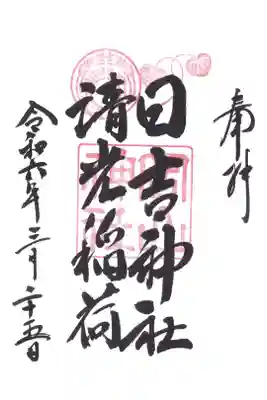 奉拝
日吉神社
清光稲荷
令和六年三月二十五日